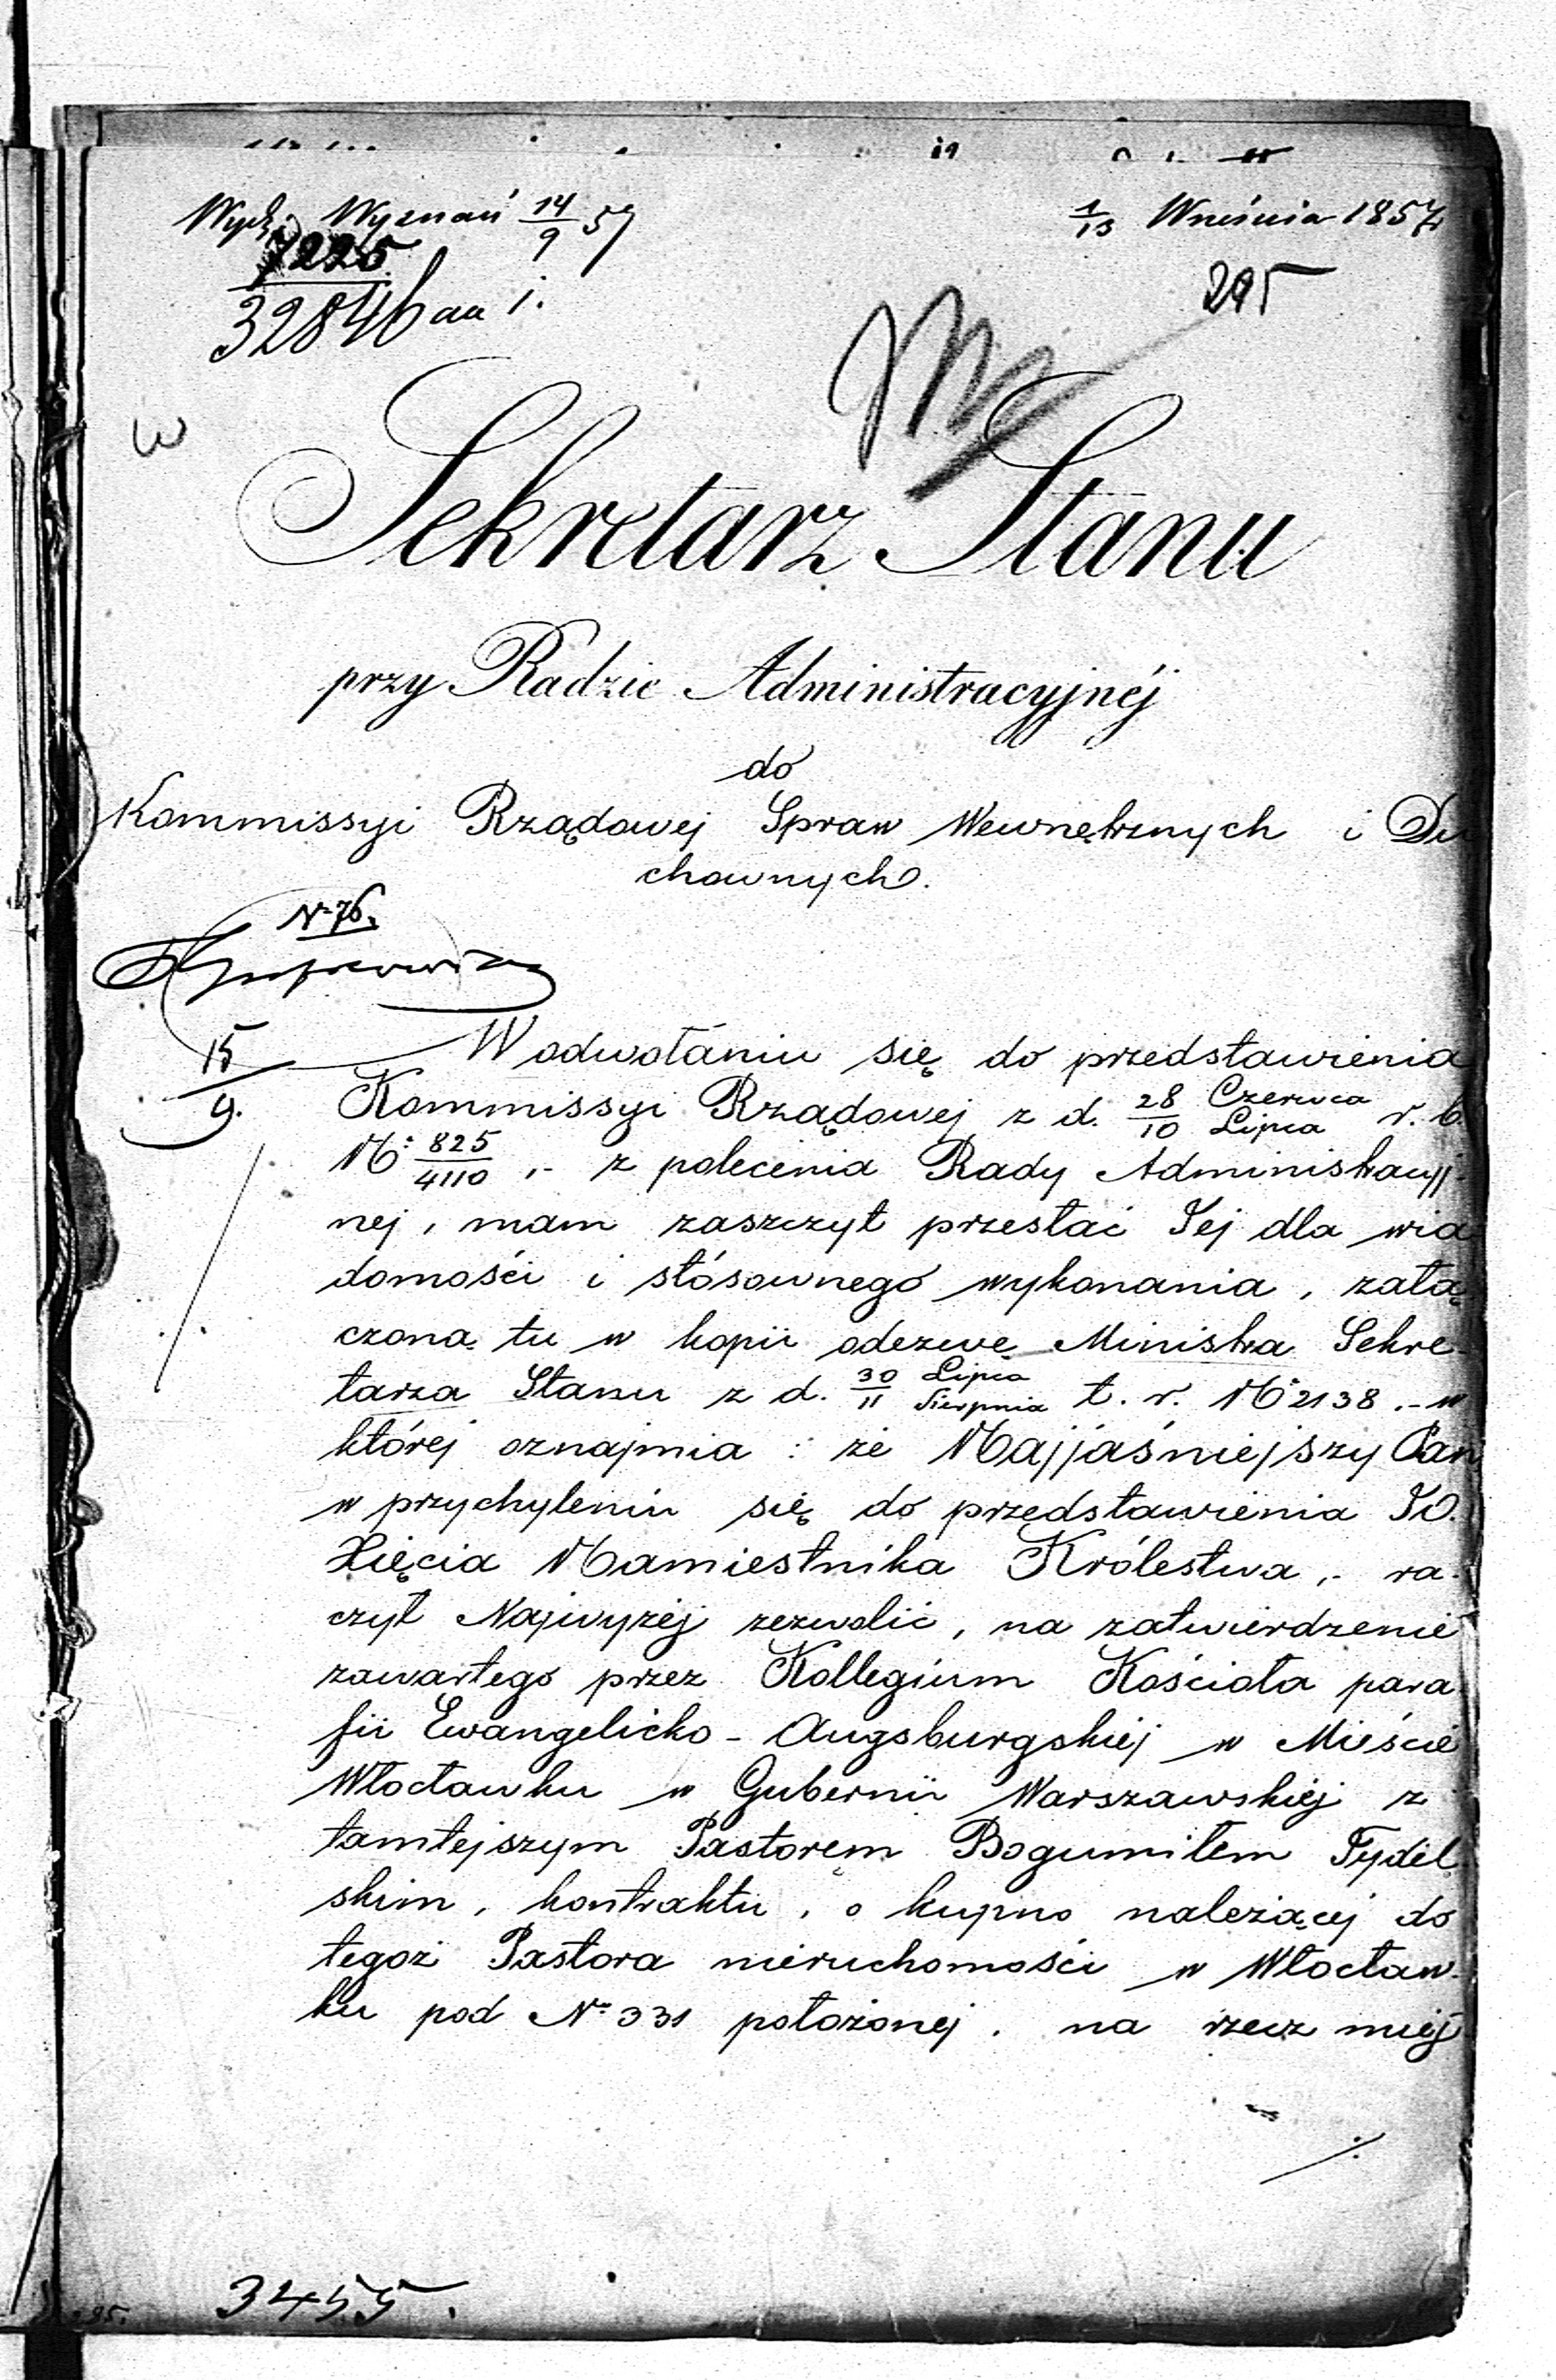 Wydz. Wyznań 14/9 57
1/13 Września 1857
7225
32846 aa i.
295
Sekretarz Stanu
przy Radzie Administracyjnéj
do
Kommissyi Rządowej Spraw Wewnętrznych i Du
chownych.
Nº 76.
15/9.
W odwołaniu się do przedstawienia
Kommissyi Rządowej z d. 28 Czerwca/10 Lipca r. b.
Nº 825/4110, - z polecenia Rady Administracyj-
nej, mam zaszczyt przesłać Jej dla wia
domości i stósownego wykonania, załą
czoną tu w kopii odezwę Ministra Sekre-
tarza Stanu z d. 30 Lipca/11 Sierpnia t. r. Nº 2138. - w
której oznajmia: że Najjaśniejszy Pan
w przychyleniu się do przedstawienia JO.
Xięcia Namiestnika Królestwa, - ra-
czył Najwyżéj zezwolić, na zatwierdzenie
zawartego przez Kollegium Kościoła para
fii Ewangelicko-Augsburgskiéj w Mieście
Włocławku w Gubernii Warszawskiéj z
tamtejszym Pastorem Bogumiłem Tydel
skim, kontraktu, o kupno należącéj do
tegoż Pastora nieruchomości w Włocław-
ku pod Nº 331 położonej. na rzecz miej
./.
3455.